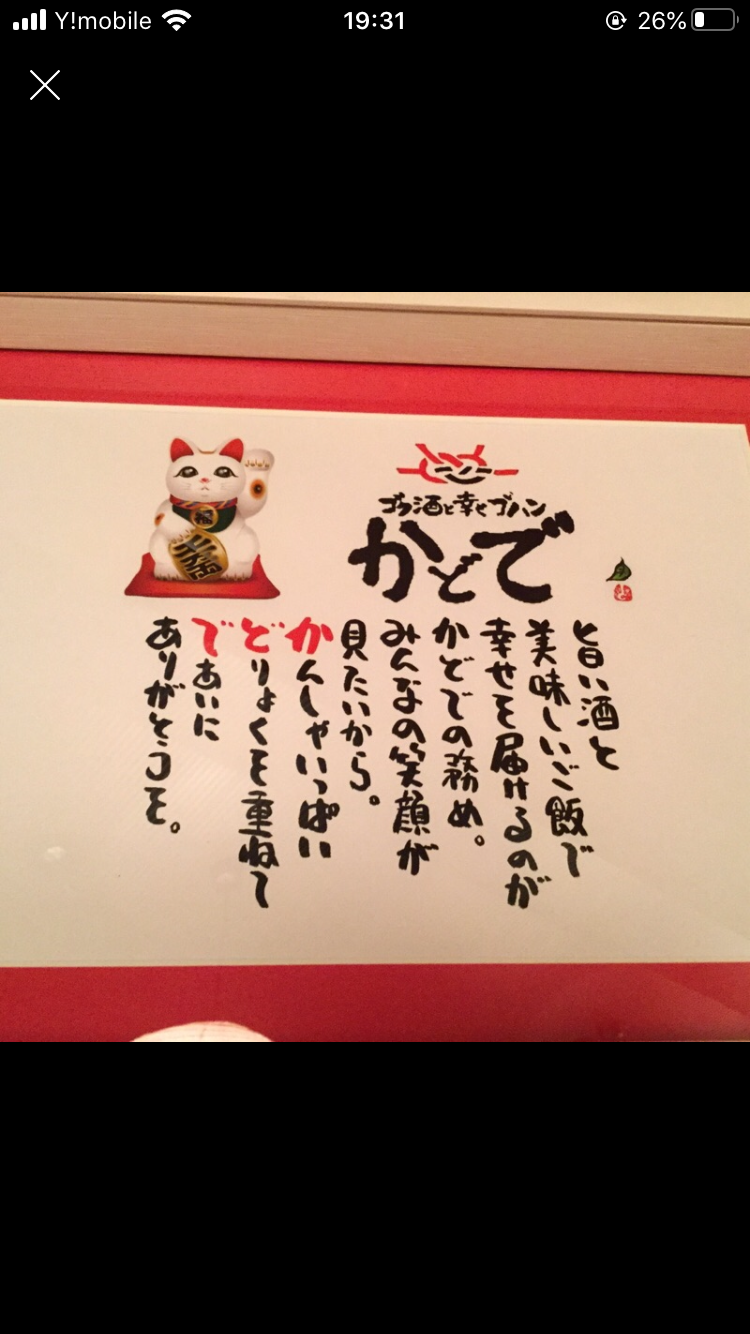 Y!mobile
19:31
26%
ゴク酒と幸せゴハン
かどで
旨い酒と
美味しいご飯で
幸せを届けるのが
かどでの務め。
みんなの笑顔が
見たいから。
かんしゃいっぱい
どりょくを重ねて
であいに
ありがとうを。